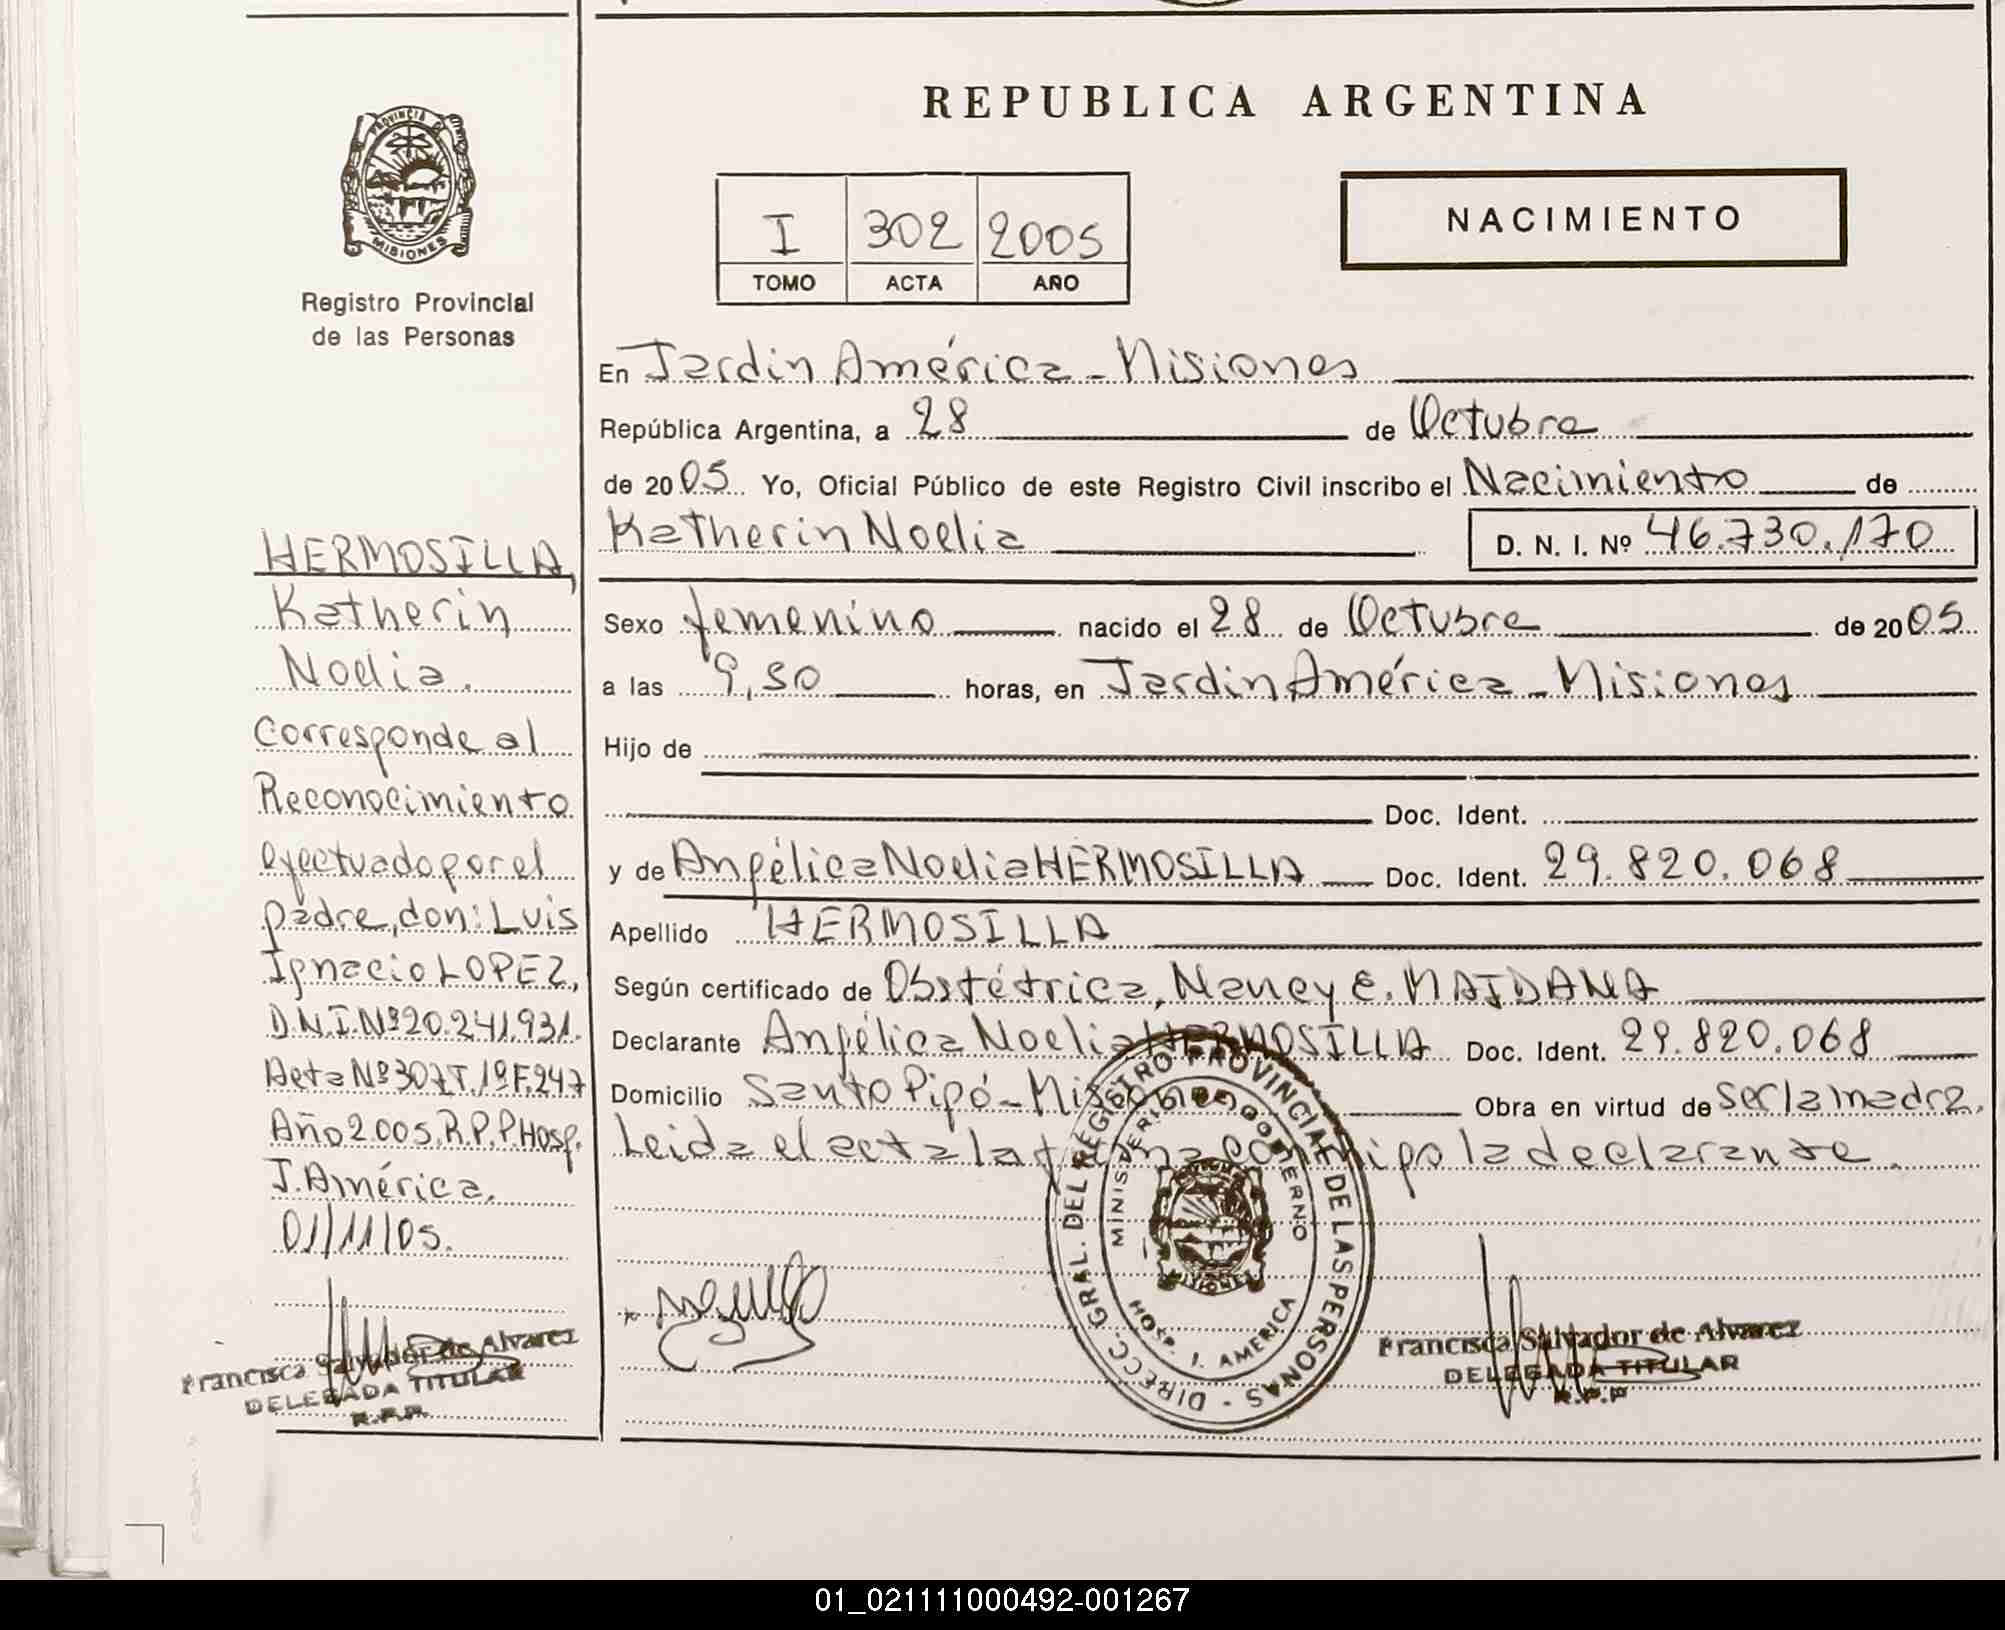 REPUBLICA ARGENTINA
PROVINCIA DE
MISIONES
Registro Provincial
de las Personas
I 302 2005
TOMO ACTA AÑO
NACIMIENTO
En Jardin América - Misiones
República Argentina, a 28 de Octubre
de 2005 Yo, Oficial Público de este Registro Civil inscribo el Nacimiento de
Katherin Noelia D. N. I. Nº 46.730.170
Sexo femenino nacido el 28 de Octubre de 2005
a las 9,50 horas, en Jardin América - Misiones
Hijo de
Doc. Ident.
y de Angélica Noelia HERMOSILLA Doc. Ident. 29.820.068
Apellido HERMOSILLA
Según certificado de Obstétrica, Nancy E. MAIDANA
Declarante Angélica Noelia HERMOSILLA Doc. Ident. 29.820.068
Domicilio Santo Pipó - Misiones Obra en virtud de ser la madre.
Leida el acta la firma conmigo la declarante.
HERMOSILLA,
Katherin
Noelia.
Corresponde al
Reconocimiento
efectuado por el
padre, don: Luis
Ignacio LOPEZ,
D.N.I.Nº20.241.931.
Acta Nº307T.1ºF.247
Año 2005.R.P.P.Hosp.
J. América.
01/11/05.
Francisca Salvador de Alvarez
DELEGADA TITULAR
R.P.P.
DIRECC. GRAL. DEL REGISTRO PROVINCIAL DE LAS PERSONAS -
MINISTERIO DE GOBIERNO
MISIONES
HOSP. J. AMERICA
Francisca Salvador de Alvarez
DELEGADA TITULAR
R.P.P
01_021111000492-001267